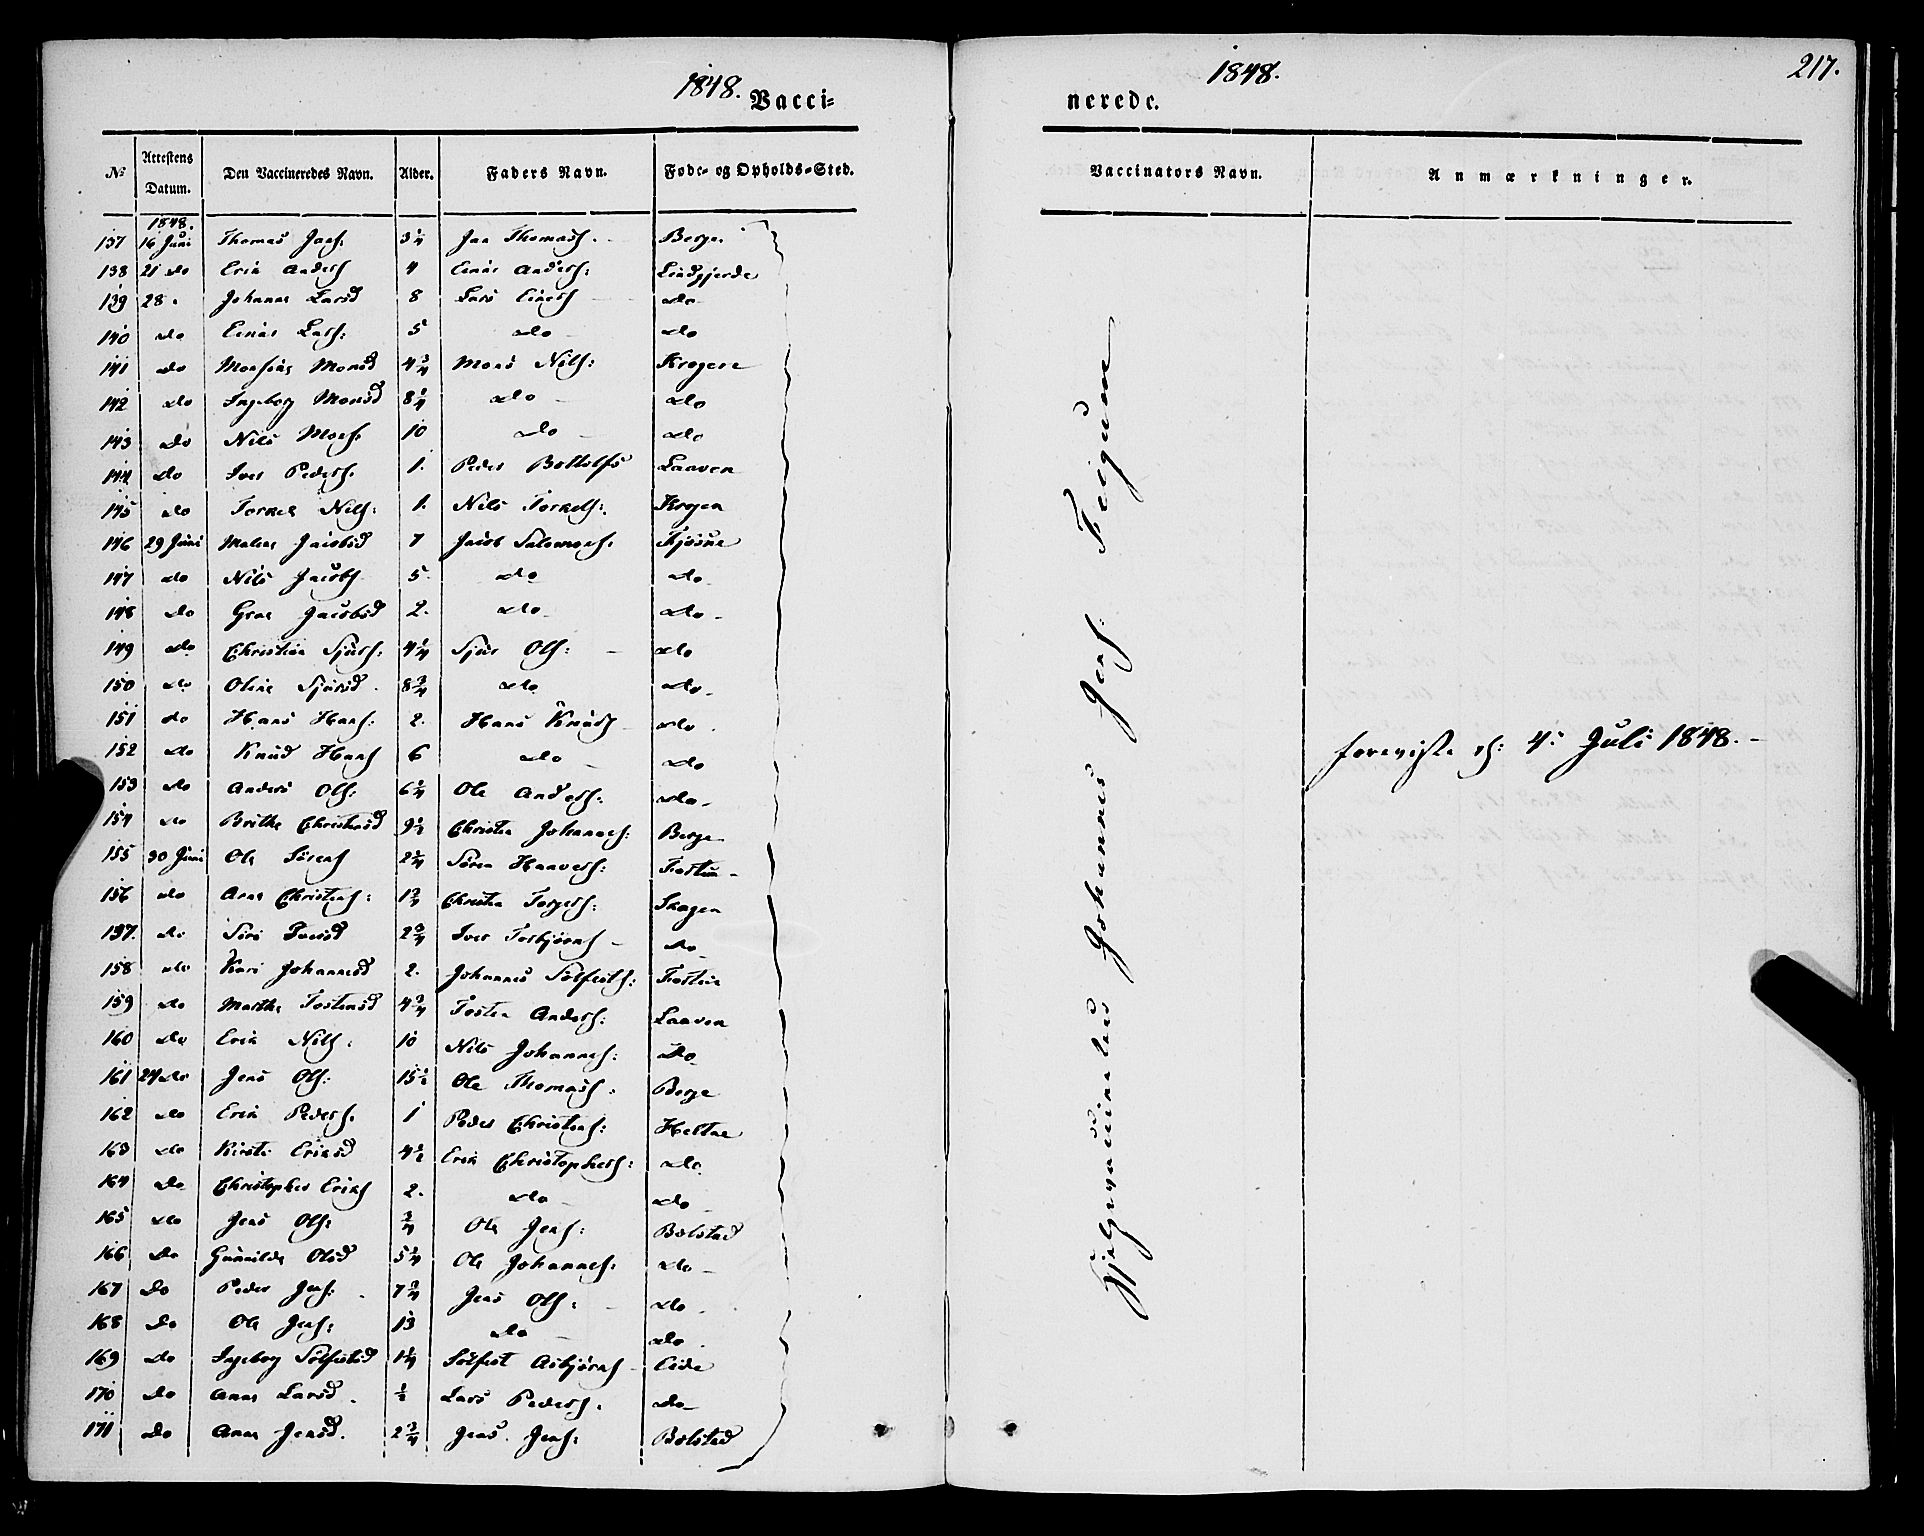 1848. Vacci-
nerede. 1848. 217.
№ Attestens Datum. Den Vaccineredes Navn. Alder. Faders Navn. Føde- og Opholds-Sted.
Vaccinators Navn. Anmærkninger.
1848.
137 16 Juni Thomas Jans: 3 1/4 Jan Thomass. Berge.
138 21 do Erik Anders 4 Einar Anders: Lindgjerde
139 28. Johanna Larsd 8 Lars Einars do
140 do Einar Lars: 5 do do
141 do Monsd 4 3/4 Mons Nils: Krogen
142 do Ingeborg Monsd 8 1/4 do do
143 do Nils Mons. 10 do do
144 do Iver Peders. 1. Peder Bottolfs Laaven
145 do Torkel Nils: 1. Nils Torkels: Krogen
146 29 Juni Malene Jacobsd 7 Jacob Salomons. Kjøsne
147 do Nils Jacobs 5. do do
148 do Jacobsd 2. do do
149 do Christian Sjurs: 4 1/4 Sjur Ols: do
150 do Oline Sjursd. 8 3/4 do do
151 do Hans Hans: 2. Hans Knuds do
152 do Knud Hans 6 do do
153 do Anders Ols: 6 3/4 Ole Anders: do
154 do Brithe Christensd 9 1/2 Christen Johannes: Berge
155 30 Juni Ole Sørens 2 1/4 Søren Haavers:
156 do Arne Christens: 1 3/4 Christen Torgers: Skagen
157. do Siri Iversd 2 3/4 Iver Torbjørns do
158 do Kari Johannesd 2. Johannes Solfests:
159 do Marthe Tostensd 4 3/4 Tosten Anders: Laaven
160 do Erik Nils: 10 Nils Johannes: do
161 24 do Jens Ols: 15 1/2 Ole Thomass: Berge
162 do Erik Peders. 1 Peder Christens: Heltne
163 do Kirsti Eriksd 4 1/2 Erik Christophers: do
164 do Christopher Eriks 2. do do
165 do Jens Ols: 3/4 Ole Jens: Bolstad
166 do Gunnilde Olsd 5 3/4 Ole Johannes: do
167 do Peder Jens: 7 3/4 Jens Ols: do
168 do Ole Jens: 13 do do
169 do Ingeborg Solfestsd 1 1/4 Solfest Asbjørns Eide
170 do Anna Larsd. 1/2 Lars Peders. do
171 do Anna Jensd. 2 3/4 Jens Jens: Bolstad
Hjelpevaccinateur Johannes Jens: Feigum
foreviste d: 4: Juli 1848.